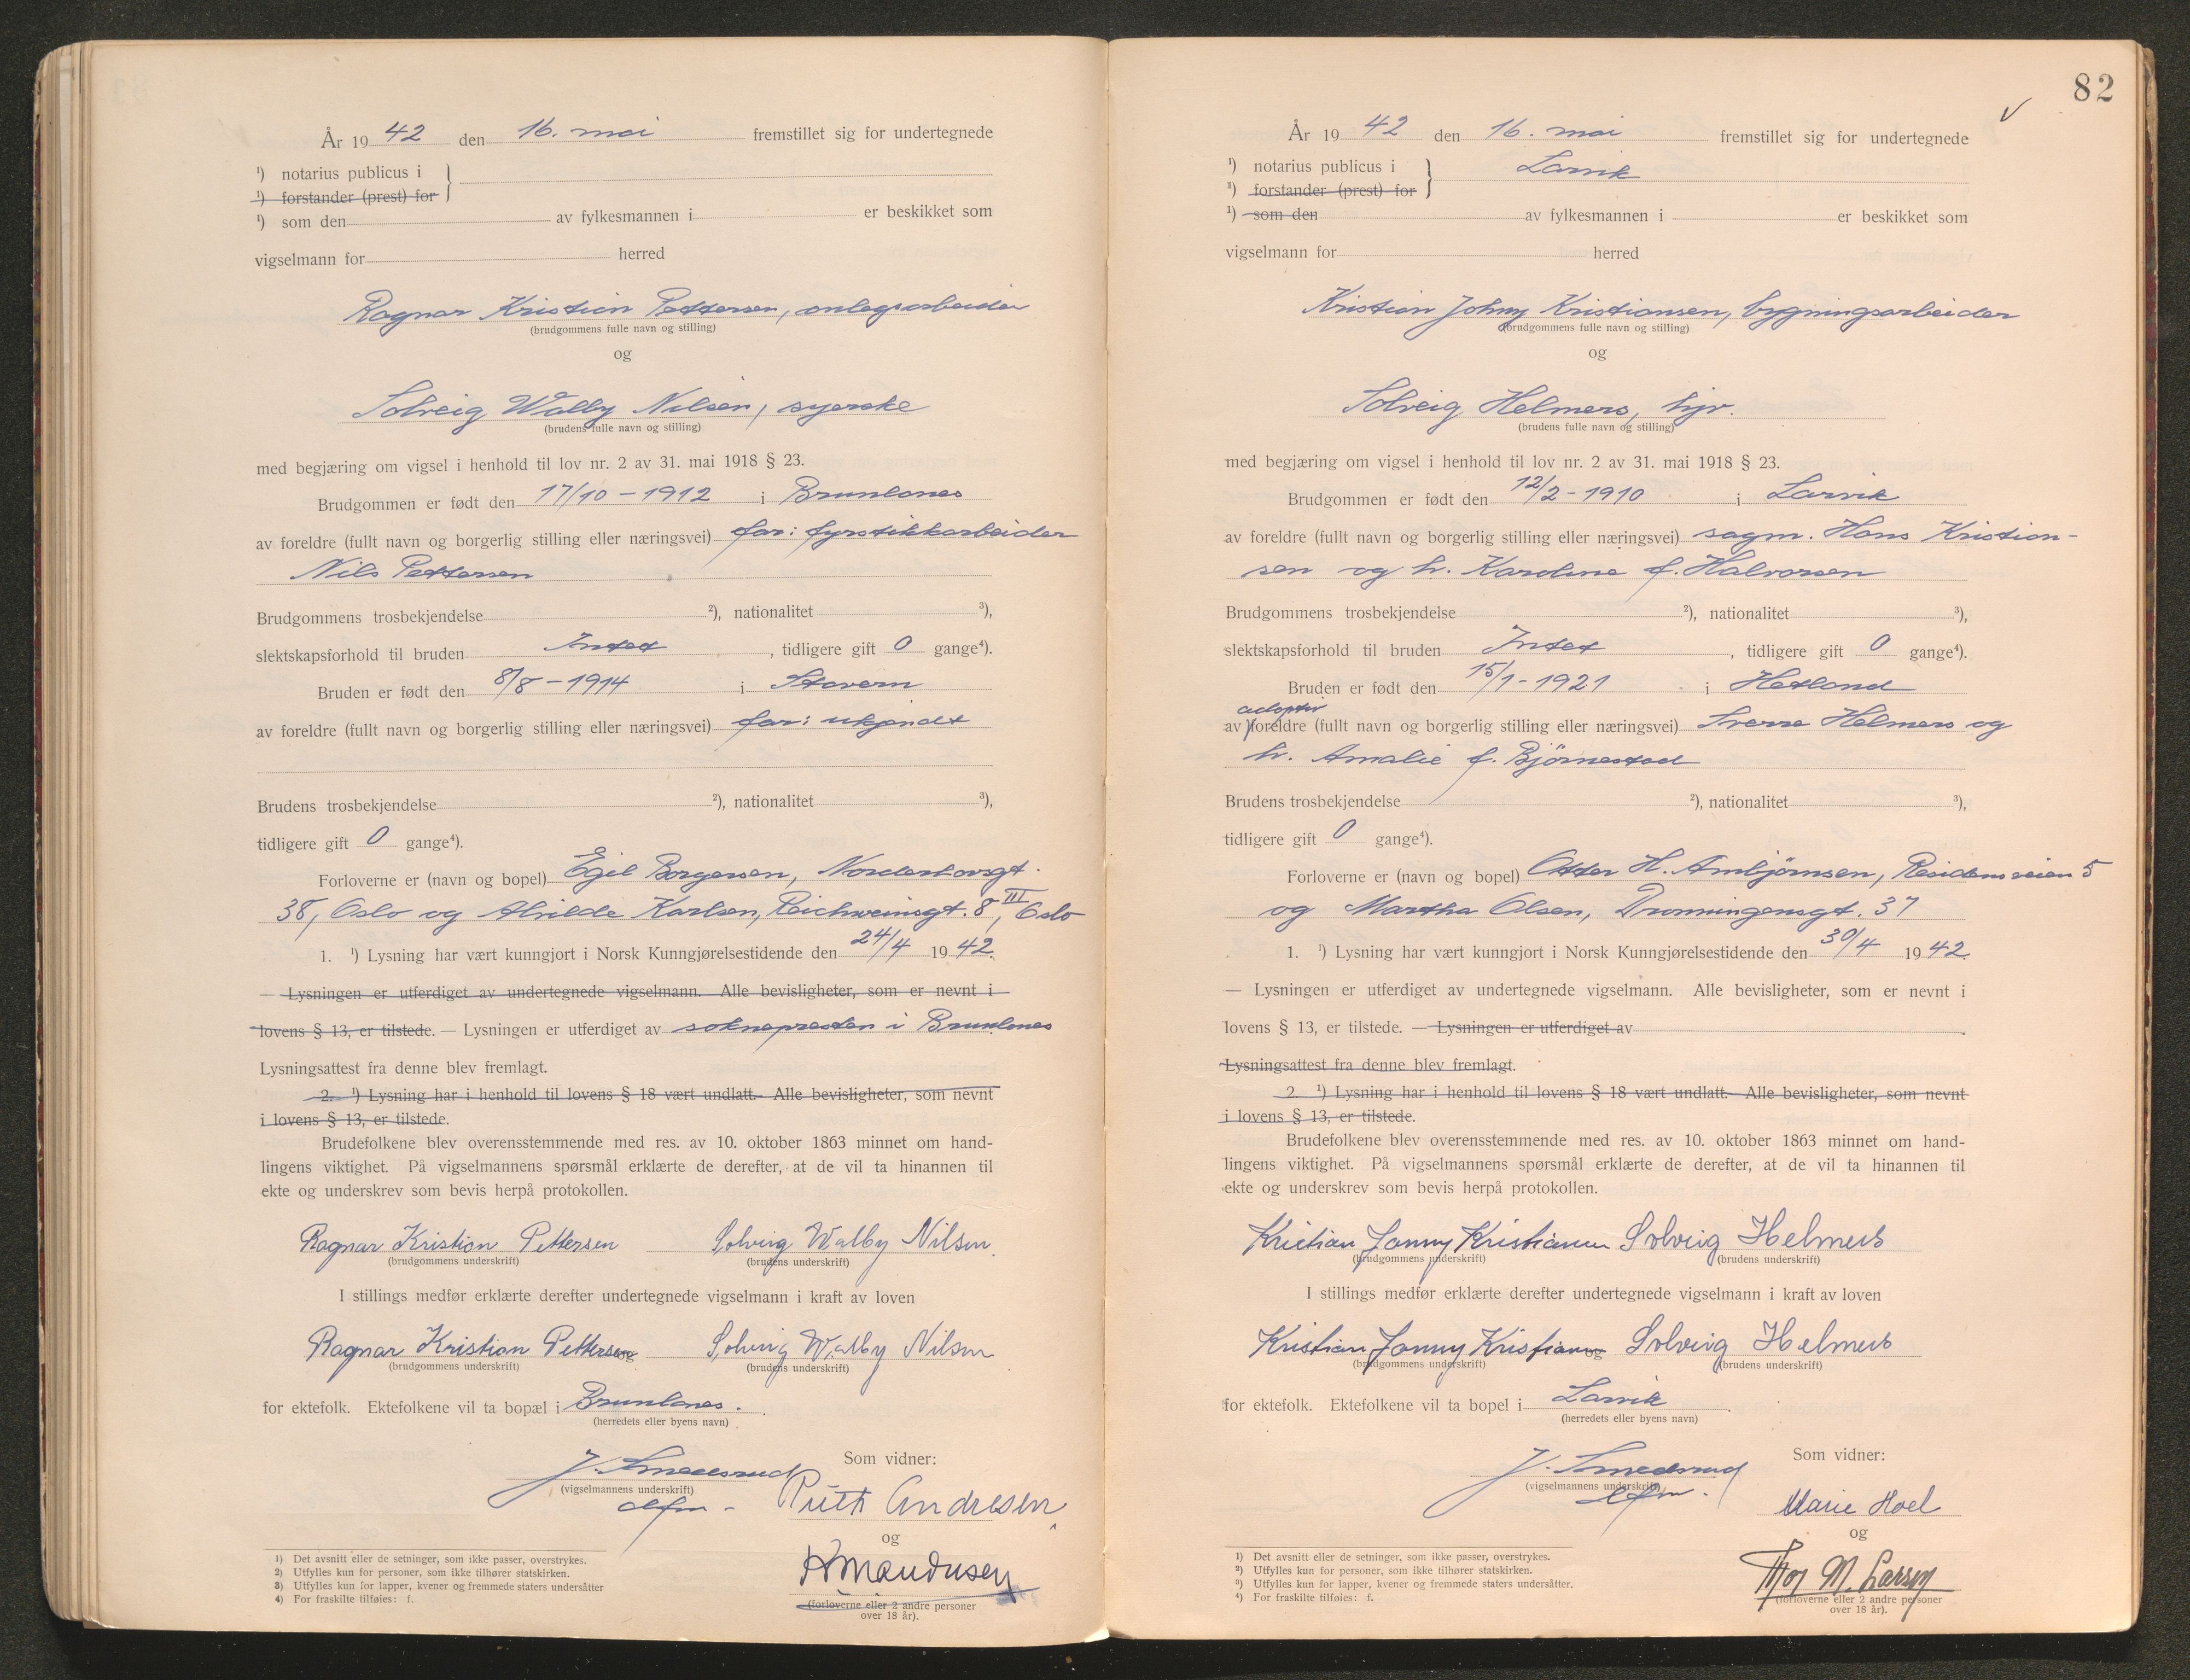 År 19 42 den 16. mai fremstillet sig for undertegnede
¹) notarius publicus i
¹) forstander (prest) for
¹) som den av fylkesmannen i er beskikket som
vigselmann for herred
Ragnar Kristian Pettersen, anlegsarbeider
(brudgommens fulle navn og stilling)
og
Solveig Walby Nilsen, syerske
(brudens fulle navn og stilling)
med begjæring om vigsel i henhold til lov nr. 2 av 31. mai 1918 § 23.
Brudgommen er født den 17/10-1912 i Brunlanes
av foreldre (fullt navn og borgerlig stilling eller næringsvei) far: fyrstikkarbeider
Nils Pettersen
Brudgommens trosbekjendelse ²), nationalitet ³),
slektskapsforhold til bruden Intet, tidligere gift 0 gange⁴).
Bruden er født den 8/8-1914 i Stavern
av foreldre (fullt navn og borgerlig stilling eller næringsvei) far: ukjendt
Brudens trosbekjendelse ²), nationalitet ³),
tidligere gift 0 gange⁴).
Forloverne er (navn og bopel) Egil Borgersen, Norderhovsgt.
38, Oslo og Alvilde Karlsen, Reichweinsgt. 8 III, Oslo
1. ¹) Lysning har vært kunngjort i Norsk Kunngjørelsestidende den 24/4 19 42.
— Lysningen er utferdiget av undertegnede vigselmann. Alle bevisligheter, som er nevnt i
lovens § 13, er tilstede. — Lysningen er utferdiget av soknepresten i Brunlanes
Lysningsattest fra denne blev fremlagt.
2. ¹) Lysning har i henhold til lovens § 18 vært undlatt. Alle bevisligheter, som nevnt
i lovens § 13, er tilstede.
Brudefolkene blev overensstemmende med res. av 10. oktober 1863 minnet om hand-
lingens viktighet. På vigselmannens spørsmål erklærte de derefter, at de vil ta hinannen til
ekte og underskrev som bevis herpå protokollen.
Ragnar Kristian Pettersen Solveig Walby Nilsen
(brudgommens underskrift) (brudens underskrift)
I stillings medfør erklærte derefter undertegnede vigselmann i kraft av loven
Ragnar Kristian Pettersen og Solveig Walby Nilsen
(brudgommens underskrift) (brudens underskrift)
for ektefolk. Ektefolkene vil ta bopæl i Brunlanes.
(herredets eller byens navn)
Som vidner:
J. Smedsrud
(vigselmannens underskrift)
Ruth Andresen
og
(forloverne eller 2 andre personer
over 18 år).
1) Det avsnitt eller de setninger, som ikke passer, overstrykes.
2) Utfylles kun for personer, som ikke tilhører statskirken.
3) Utfylles kun for lapper, kvener og fremmede staters undersåtter
4) For fraskilte tilføies: f.
82
✓
År 19 42 den 16. mai fremstillet sig for undertegnede
¹) notarius publicus i Larvik
²) forstander (prest) for
¹) som den av fylkesmannen i er beskikket som
vigselmann for herred
Kristian Johny Kristiansen, bygningsarbeider
(brudgommens fulle navn og stilling)
og
Solveig Helmers, hjv.
(brudens fulle navn og stilling)
med begjæring om vigsel i henhold til lov nr. 2 av 31. mai 1918 § 23.
Brudgommen er født den 12/2-1910 i Larvik
av foreldre (fullt navn og borgerlig stilling eller næringsvei) sagm. Hans Kristian-
sen og h. Karoline f. Halvorsen
Brudgommens trosbekjendelse ²), nationalitet ³),
slektskapsforhold til bruden Intet, tidligere gift 0 gange⁴).
Bruden er født den 15/1-1921 i Hetland
adoptiv
av foreldre (fullt navn og borgerlig stilling eller næringsvei) Sverre Helmers og
h. Amalie f. Björnestad
Brudens trosbekjendelse ²), nationalitet ³),
tidligere gift 0 gange⁴).
Forloverne er (navn og bopel) Otter H. Ambjørnsen, Residensveien 5
og Martha Olsen, Dronningensgt. 37
1. ¹) Lysning har vært kunngjort i Norsk Kunngjørelsestidende den 30/4 19 42.
— Lysningen er utferdiget av undertegnede vigselmann. Alle bevisligheter, som er nevnt i
lovens § 13, er tilstede. — Lysningen er utferdiget av
Lysningsattest fra denne blev fremlagt.
2. ¹) Lysning har i henhold til lovens § 18 vært undlatt. Alle bevisligheter, som nevnt
i lovens § 13, er tilstede.
Brudefolkene blev overensstemmende med res. av 10. oktober 1863 minnet om hand-
lingens viktighet. På vigselmannens spørsmål erklærte de derefter, at de vil ta hinannen til
ekte og underskrev som bevis herpå protokollen.
Kristian Jonny Kristiansen Solveig Helmers
(brudgommens underskrift) (brudens underskrift)
I stillings medfør erklærte derefter undertegnede vigselmann i kraft av loven
Kristian Jonny Kristiansen og Solveig Helmers
(brudgommens underskrift) (brudens underskrift)
for ektefolk. Ektefolkene vil ta bopel i Larvik
(herredets eller byens navn)
Som vidner:
J. Smedsrud
(vigselmannens underskrift)
Marie Hoel
og
Thor M. Larsen
(forloverne eller 2 andre personer
over 18 år).
1) Det avsnitt eller de setninger, som ikke passer, overstrykes.
2) Utfylles kun for personer, som ikke tilhører statskirken.
3) Utfylles kun for lapper, kvener og fremmede staters undersåtter.
4) For fraskilte tilføies: f.